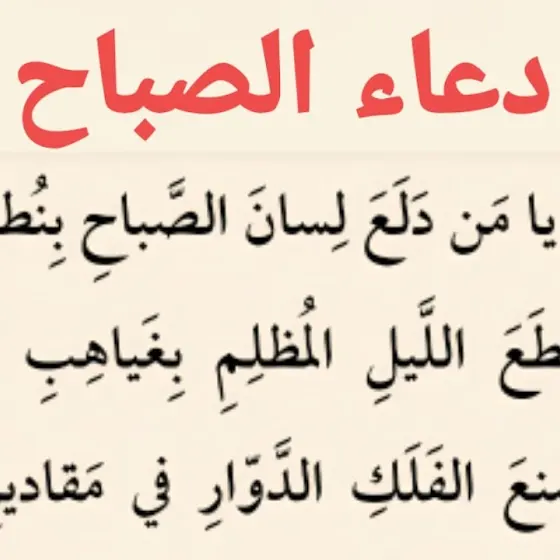 دعاء الصباح
يا مَن دَلَعَ لِسانَ الصَّباحِ
اللَّيلِ المُظلِمِ بِغَياهِبِ
الفَلَكِ الدَّوّارِ في